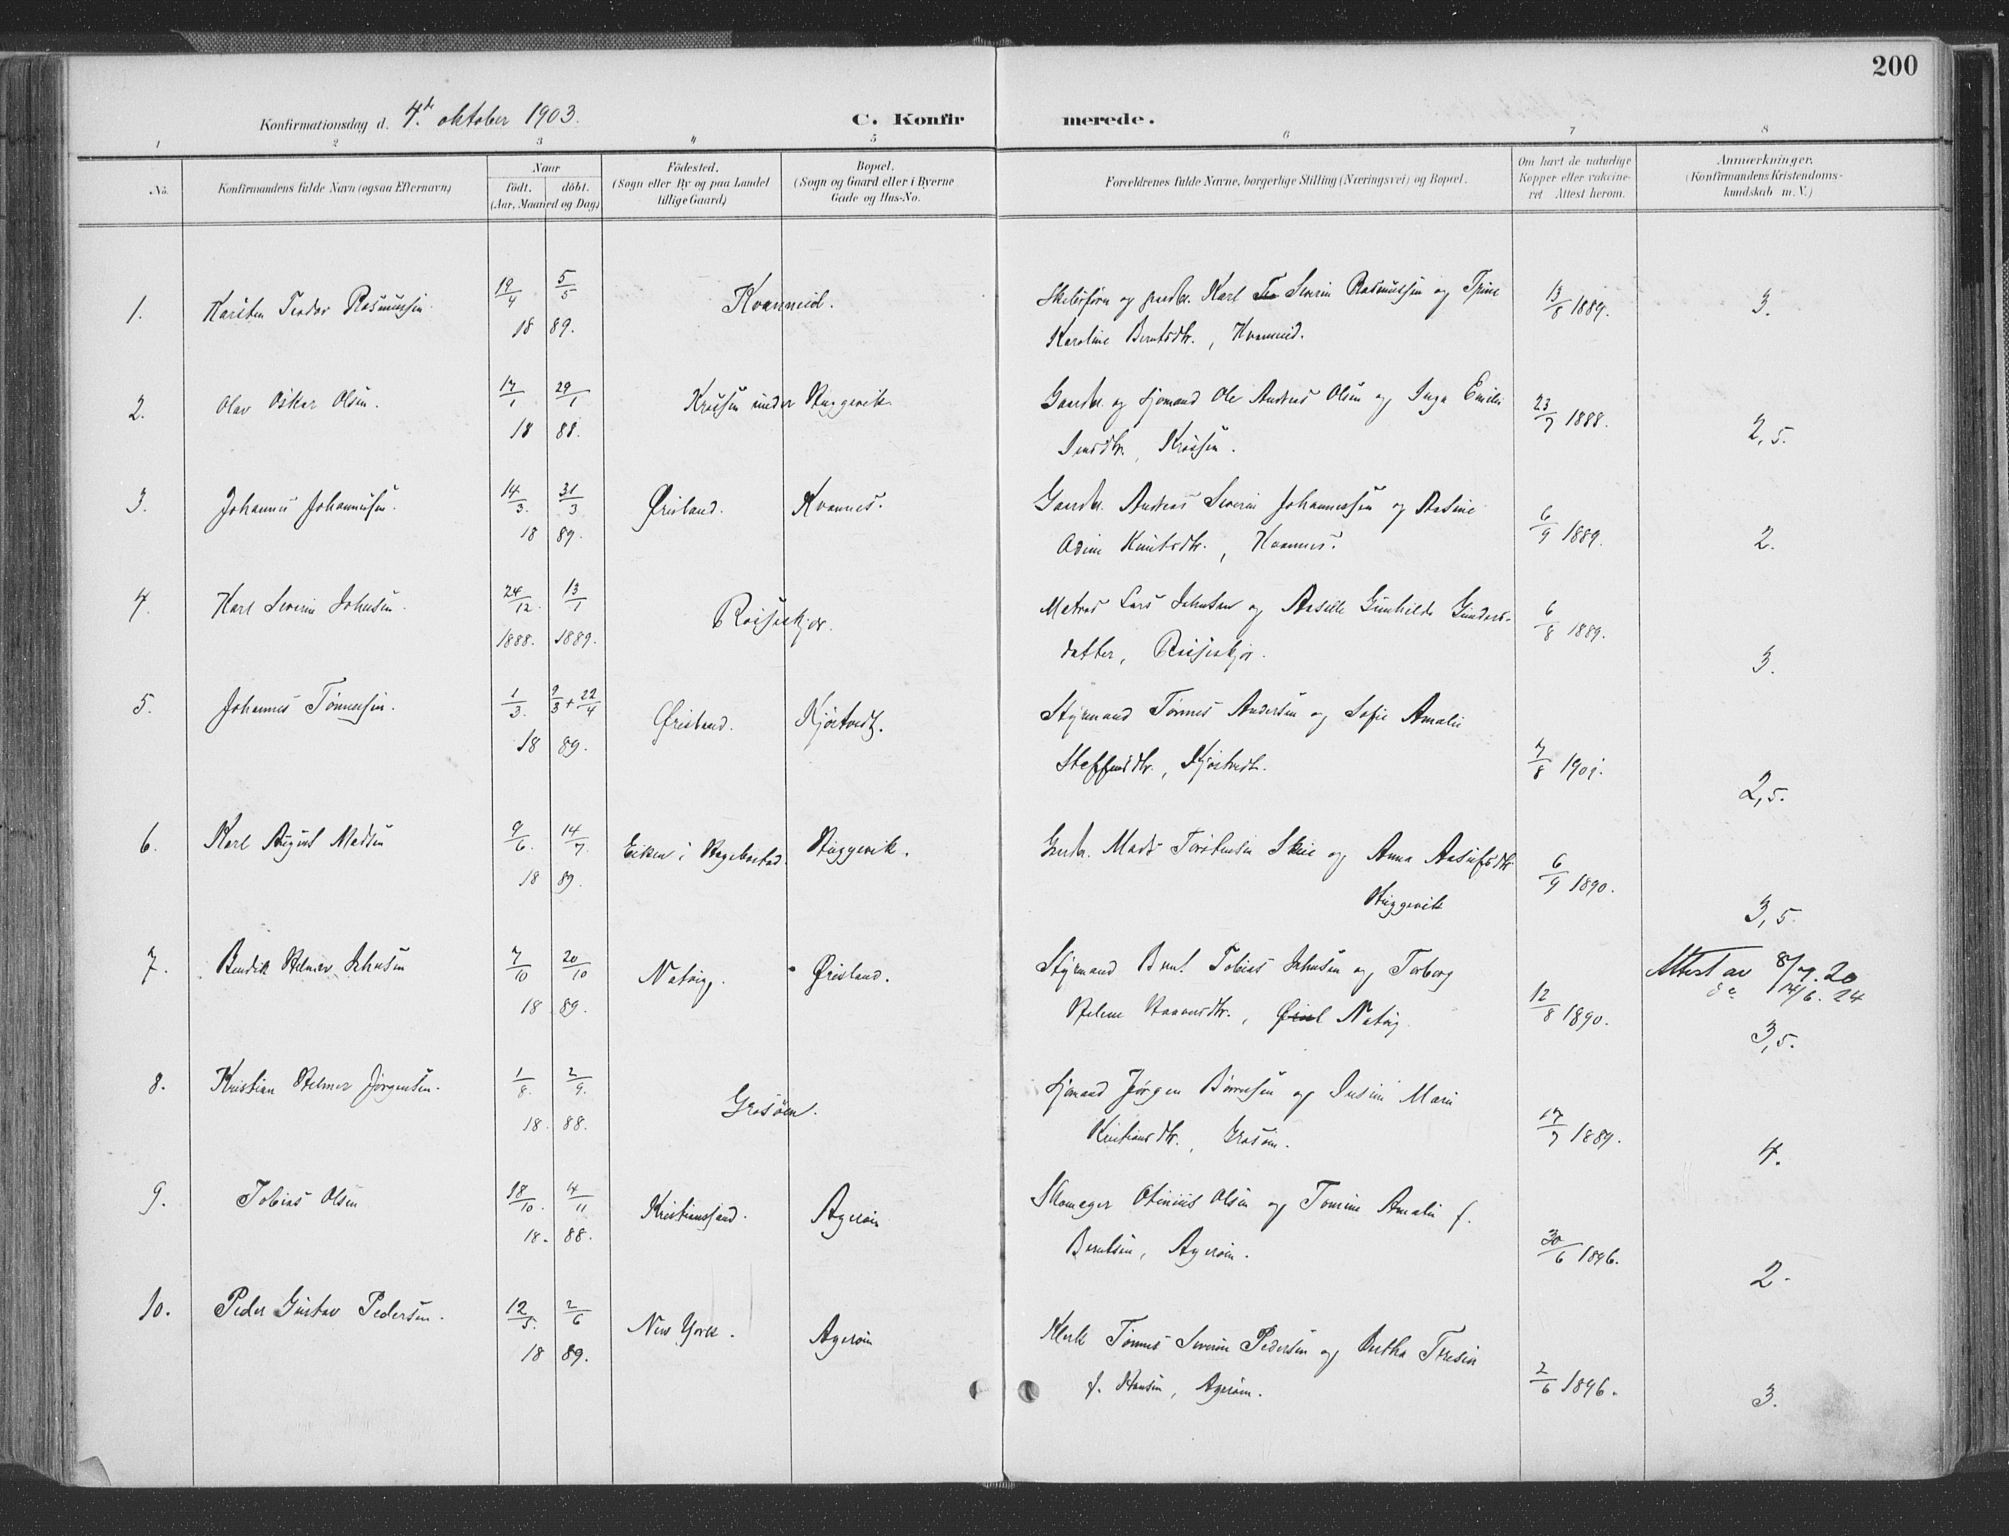 200
Konfirmationsdag d. 4de oktober 1903. C. Konfirmerede.
1 2 3 4 5 6 7 8
No.
Konfirmandens fulde Navn (ogsaa Efternavn)
Naar
født. døbt.
(Aar, Maaned og Dag)
Fødested.
(Sogn eller By og paa Landet
tillige Gaard)
Bopæl.
(Sogn og Gaard eller i Byerne
Gade og Hus-No.
Forældrenes fulde Navne, borgerlige Stilling (Næringsvei) og Bopæl.
Om havt de naturlige
Kopper eller vaccine-
ret Attest herom.
Anmærkninger.
(Konfirmandens Kristendoms-
kundskab m. V.)
1. Karsten Teodor Rasmussen 19/4 5/5 Kvanneid. Skibsfører og gaardbr. Karl Severin Rasmussen og Trine 13/8 1889. 3.
18 89. Karoline Berntsdtr., Kvanneid.
2. Olav Oskar Olsen. 17/1 29/1 under Stuggevik. Gaardbr. og sjømand Ole Andreas Olsen og Inga Emilie 23/7 1888. 2,5.
18 88. Jensdtr.
3. Johannes Johannessen. 14/3. 31/3 Øisland. Kvannes. Gaardbr. Andreas Severin Johannessen og Rasine 6/9 1889. 2.
18 89. Knutsdtr., Kvannes.
4. Karl Severin Johnsen. 24/12. 13/1 Røiseskjær. Matros Lars Johnsen og Gunhilde Gunders- 6/8 1889. 3.
1888. 1889. datter, Røiseskjær.
5. Johannes Tønnessen. 1/3. 9/3 + 22/4 Øisland. Kjøstvedt. Styrmand Tønnes Andersen og Sofie Amalie 7/8 1901. 2,5.
18 89. Steffensdtr., Kjøstvedt.
6. Karl August Madsen 9/6. 14/7. Eiken i Hægebostad. Stuggevik. Gaardbr. Mads Torstensen Skeie og Anna Aasulfsdtr. 6/9 1890. 3,5.
18 89. Stuggevik
7. Bendik Helmer Johnsen 7/10 20/10 Natvig. Øisland. Styrmand Bernt Tobias Johnsen og Torborg 12/8 1890. Attest av 8/7. 20
18 89. Helene Hansdtr., Natvig. do 14/6. 24
3,5.
8. Kristian Helmer Jørgensen. 1/8. 2/9. Grosøen. Sjømand Jørgen og Marie 17/7 1889. 4.
18. 88. Kristiansdtr., Grosøen.
9. Tobias Olsen 18/10. 4/11 Kristianssand. Agerøen Skomager Olsen og Tomine Amalie f. 30/6 1896. 2.
18. 88. Berntsen, Agerøen.
10. Peder Gustav Pedersen. 12/5. 2/6 New York. Agerøen Klerk Tønnes Severin Pedersen og Bertha Tresie 2/6 1896. 3.
18 89. f. Hansen, Agerøen.